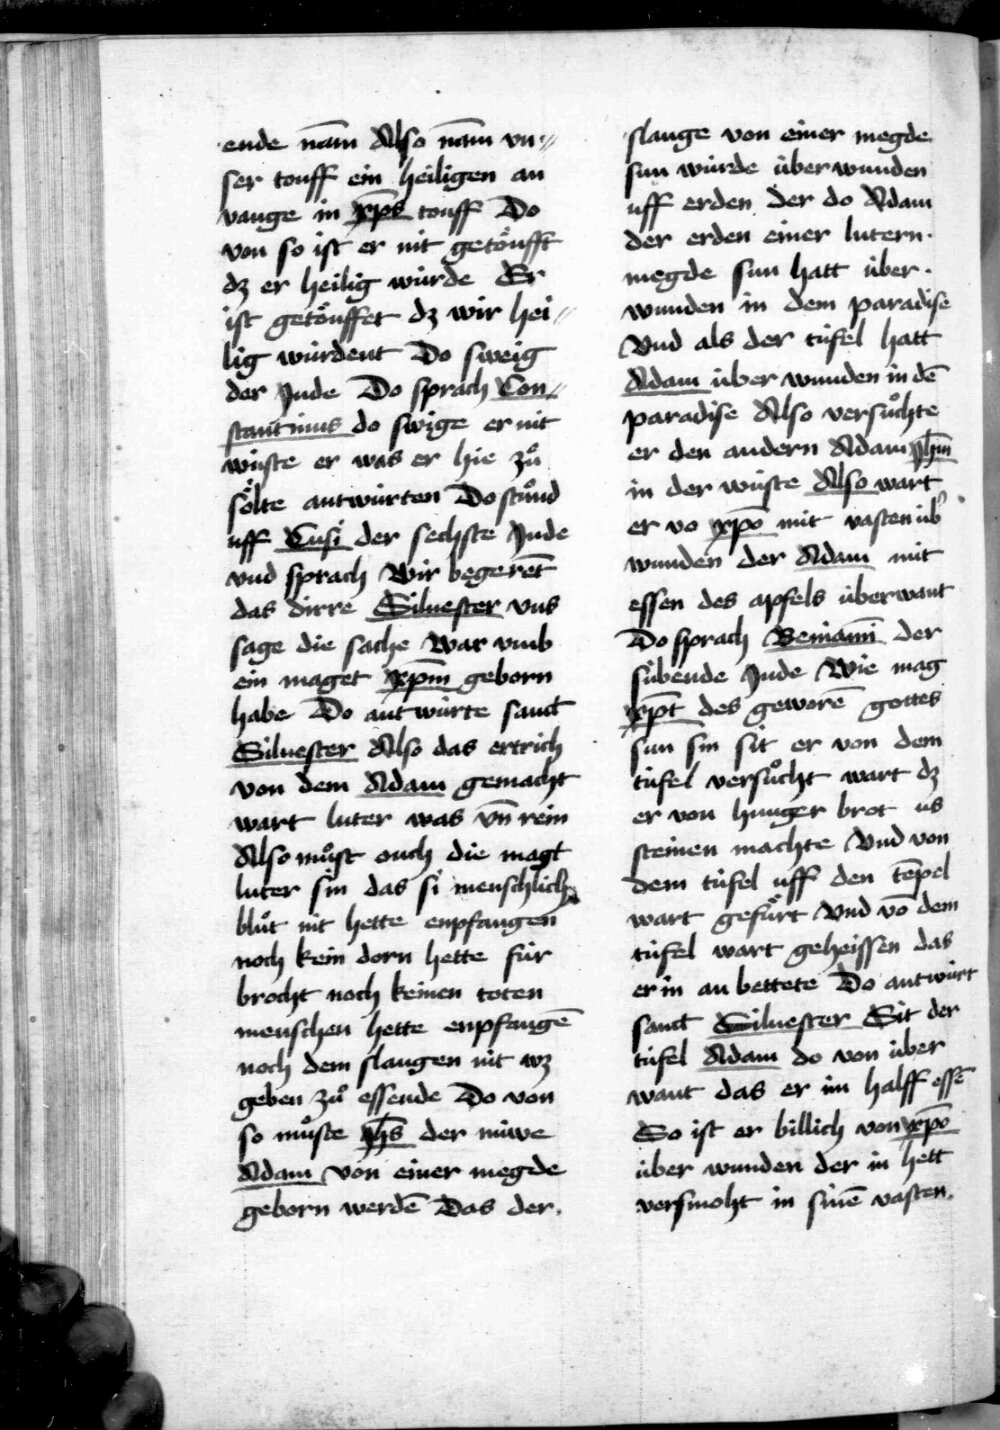 ende nam̄ Also nam̄ vn⸗
ser touff ein heiligen an
vange in xp̄s touff Do
von so ist er nit getoͤufft
dz er heilig wurde Er
ist getoͤuffet dz wir hei⸗
lig wurdent Do sweig
der Jude Do sprach Con⸗
stantinus do swige er nit
wuste er was er hie zuͦ
soͤlte antwurten Do stuͦnd
uff Cusi der sechste Jude
vnd sprach Wir begerēt
das dirre Siluester vns
sage die sache War vmb
ein maget xp̄m geborn
habe Do antwurte sanct
Siluester Also das ertrich
von dem Adam gemacht
wart luter was vn̄ rein
Also muͦst ouch die magt
luter sin das si menschlich
bluͦt nit hette enpfangen
noch kein dorn hette fúr
brocht noch keinen toten
menschen hette enpfangē
noch dem slangen nit wz
geben zuͦ essende Do von
so muͦste jh̄s der nuwe
Adam von einer megde
geborn werdē Das der.
slange von einer megde
sun wurde úberwunden
uff erden der do Adam
der erden einer lutern.
megde sun hatt úber.
wunden in dem paradise
Vnd als der tufel hatt
Adam úber wunden in dē
paradise Also versuͦchte
er den andern Adam jh̄m
in der wuste Also wart
er vō xp̄o mit vasten úb̓
wunden der Adam mit
essen des apfels úberwant
Do sprach Beniamī der
súbende Jude Wie mag
xp̄t des geworē gottes
sun sin sit er von dem
túfel versuͦcht wart dz
er von hunger brot us
steinen machte Vnd von
dem túfel uff den tēpel
wart gefuͤrt Vnd vō dem
túfel wart geheissen das
er in an bettete Do antwurt
sanct Siluester Sit der
túfel Adam do von úber
want das er im halff essē
So ist er billich von xp̄o
úber wunden der in hett
versmoht in sinē vasten.